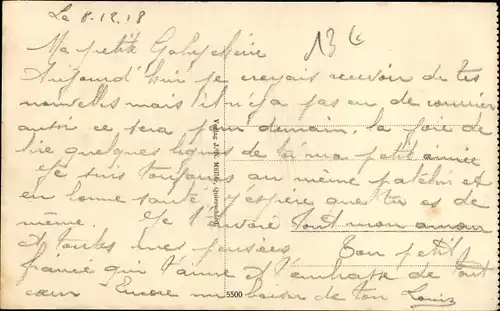 Le 8-12-18
13
Ma petite Gaby chérie
Aujourd'hui je croyais recevoir de tes
nouvelles mais il n'y a pas eu de courrier
ce sera pour demain, la joie de
lire quelques lignes de toi ma petite aimée
Je suis toujours au même patelin et
en bonne santé j'espère que tu es de
même. Je t'envoie tout mon amour
et toutes mes pensées Ton petit
fiancé qui t'aime et t'embrasse de tout
cœur Encore un baiser de ton Louis
5500